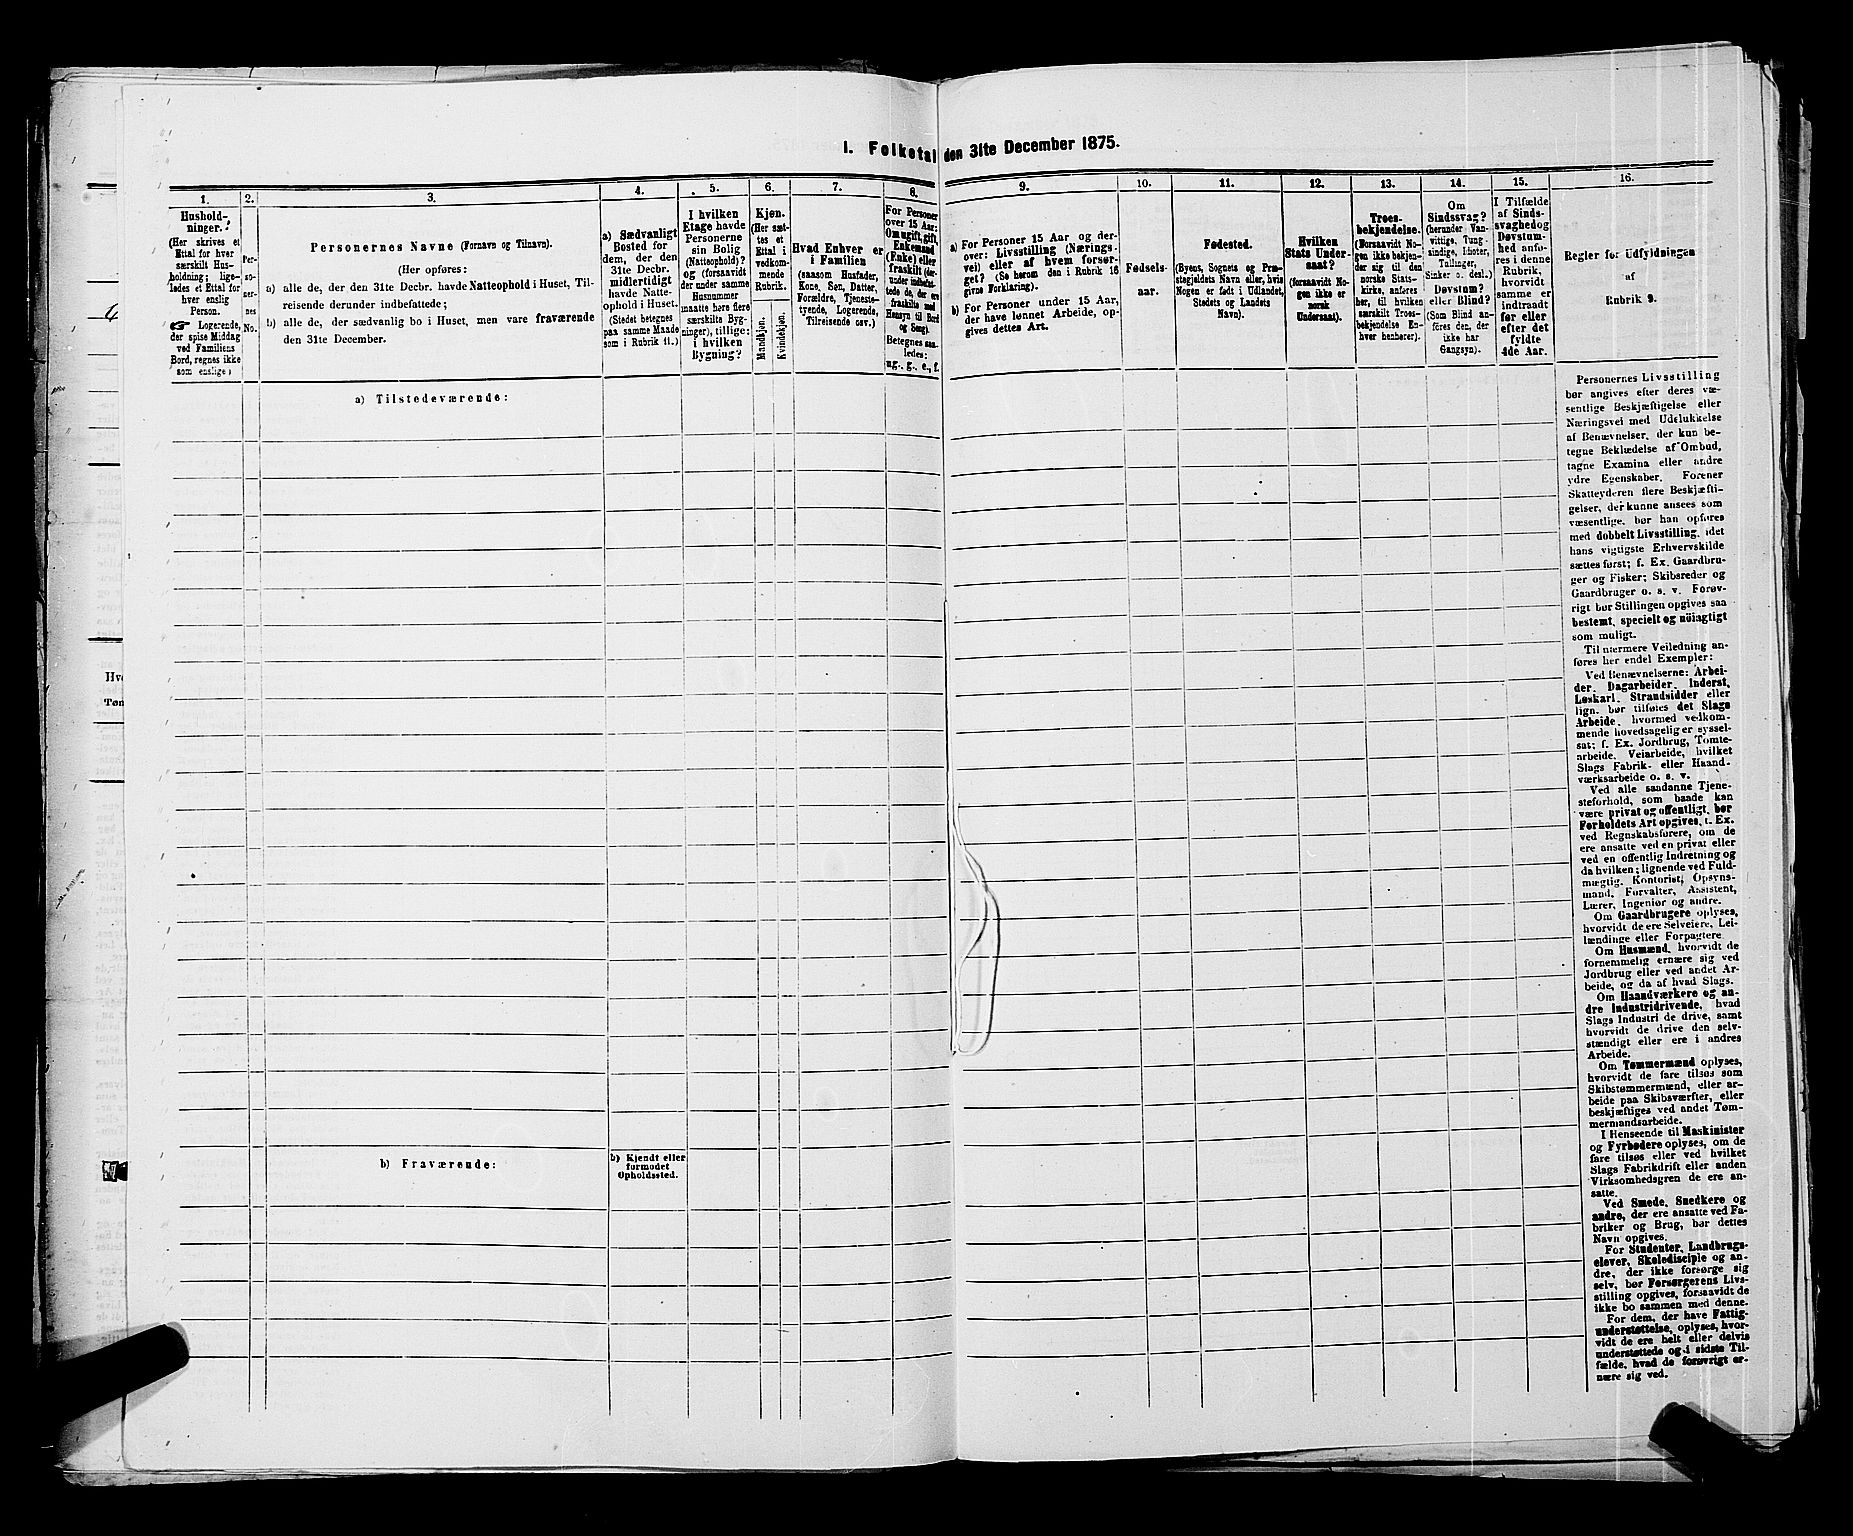 I. Folketal den 31te December 1875.
1.
Hushold-
ninger.
(Her skrives et
Ettal for hver
særskilt Hus-
holdning; lige-
ledes et Ettal for
hver enslig
Person.
☞ Logerende,
der spise Middag
ved Familiens
Bord, regnes ikke
som enslige)
2.
Per-
so-
ner-
nes
No.
3.
Personernes Navne (Fornavn og Tilnavn).
(Her opføres:
a) alle de, der den 31te Decbr. havde Natteophold i Huset, Til-
reisende derunder indbefattede;
b) alle de, der sædvanlig bo i Huset, men vare fraværende
den 31te December.
4.
a) Sædvanligt
Bosted for
dem, der den
31te Decbr.
midlertidigt
havde Natte-
ophold i Huset.
(Stedet betegnes
paa samme Maade
som i Rubrik 11.)
5.
I hvilken
Etage havde
Personerne
sin Bolig
(Natteophold)?
og (forsaavidt
der under samme
Husnummer
maatte høre flere
særskilte Byg-
ninger), tillige:
i hvilken
Bygning?
6.
Kjøn.
(Her sæt-
tes et
Ettal i
vedkom-
mende
Rubrik.
Mandkjøn.
Kvindekjøn.
7.
Hvad Enhver er
i Familien
(saasom Husfader,
Kone, Søn, Datter,
Forældre, Tjeneste-
tyende, Logerende,
Tilreisende osv.)
8.
For Personer
over 15 Aar:
Om ugift, gift,
Enkemand
(Enke) eller
fraskilt (der-
under indbefat-
tede de, der ere
fraskilte med
Hensyn til Bord
og Seng).
Betegnes saa-
ledes:
ug., g., e., f.
9.
a) For Personer 15 Aar og der-
over: Livsstilling (Nærings-
vei) eller af hvem forsør-
get? (Se herom den i Rubrik 16
givne Forklaring).
b) For Personer under 15 Aar,
der have lønnet Arbeide, op-
gives dettes Art.
10.
Fødsels-
aar.
11.
Fødested.
(Byens, Sognets og Præ-
stegjeldets Navn eller, hvis
Nogen er født i Udlandet,
Stedets og Landets
Navn).
12.
Hvilken
Stats Under-
saat?
(forsaavidt No-
gen ikke er
norsk
Undersaat).
13.
Troes-
bekjendelse.
(Forsaavidt No-
gen ikke bekjen-
der sig til den
norske Stats-
kirke, anføres
her, til hvilken
særskilt Troes-
bekjendelse En-
hver henhører).
14.
Om
Sindssvag?
(herunder Van-
vittige, Tung-
sindige, Idioter,
Tullinger,
Sinker o. desl.)
Døvstum?
eller Blind?
(Som Blind an-
føres den, der
ikke har
Gangsyn).
15.
I Tilfælde
af Sinds-
svaghed og
Døvstum-
hed anfø-
res i denne
Rubrik,
hvorvidt
samme er
indtraadt
før eller
efter det
fyldte
4de Aar.
16.
Regler for Udfyldningen
af
Rubrik 9.
a) Tilstedeværende:
b) Fraværende:
b) Kjendt eller
formodet
Opholdssted.
Personernes Livsstilling
bør angives efter deres væ-
sentlige Beskjæftigelse eller
Næringsvei med Udelukkelse
af Benævnelser, der kun be-
tegne Beklædelse af Ombud,
tagne Examina eller andre
ydre Egenskaber. Forener
Skatteyderen flere Beskjæfti-
gelser, der kunne ansees som
væsentlige, bør han opføres
med dobbelt Livsstilling, idet
hans vigtigste Erhvervskilde
sættes først; f. Ex. Gaardbru-
ger og Fisker; Skibsreder og
Gaardbruger o. s. v. Forøv-
rigt bør Stillingen opgives saa
bestemt, specielt og nøiagtigt
som muligt.
Til nærmere Veiledning an-
føres her endel Exempler:
Ved Benævnelserne: Arbei-
der, Dagarbeider, Inderst,
Løskarl, Strandsidder eller
lign. bør tilføies det Slags
Arbeide, hvormed vedkom-
mende hovedsagelig er syssel-
sat; f. Ex. Jordbrug, Tomte-
arbeide, Veiarbeide, hvilket
Slags Fabrik- eller Haand-
værksarbeide o. s. v.
Ved alle saadanne Tjene-
steforhold, som baade kan
være privat og offentligt, bør
Forholdets Art opgives, f. Ex.
ved Regnskabsførere, om de
ere ansatte ved en privat eller
ved en offentlig Indretning og
da hvilken; lignende ved Fuld-
mægtig, Kontorist, Opsyns-
mand, Forvalter, Assistent,
Lærer, Ingeniør og andre.
Om Gaardbrugere oplyses,
hvorvidt de ere Selveiere, Lei-
lændinge eller Forpagtere
Om Husmænd, hvorvidt de
fornemmelig ernære sig ved
Jordbrug eller ved andet Ar-
beide, og da af hvad Slags.
Om Haandværkere og an-
dre Industridrivende, hvad
Slags Industri de drive, samt
hvorvidt de drive den selv-
stændigt eller ere i andres
Arbeide.
Om Tømmermænd oplyses,
hvorvidt de fare tilsøs som
Skibstømmermænd, eller ar-
beide paa Skibsværfter, eller
beskjæftiges ved andet Tøm-
mermandsarbeide.
I Henseende til Maskinister
og Fyrbødere oplyses, om de
fare tilsøs eller ved hvilket
Slags Fabrikdrift eller anden
Virksomhedsgren de ere an-
satte.
Ved Smede, Snedkere og
andre, der ere ansatte ved Fa-
briker og Brug, bør dettes
Navn opgives.
For Studenter, Landbrugs-
elever, Skoledisciple og an-
dre, der ikke forsørge sig
selv, bør Forsørgerens Livs-
stilling opgives, forsaavidt de
ikke bo sammen med denne.
For dem, der have Fattig-
understøttelse, oplyses, hvor-
vidt de ere helt eller delvis
understøttede og i sidste Til-
fælde, hvad de forøvrigt er-
nære sig ved.